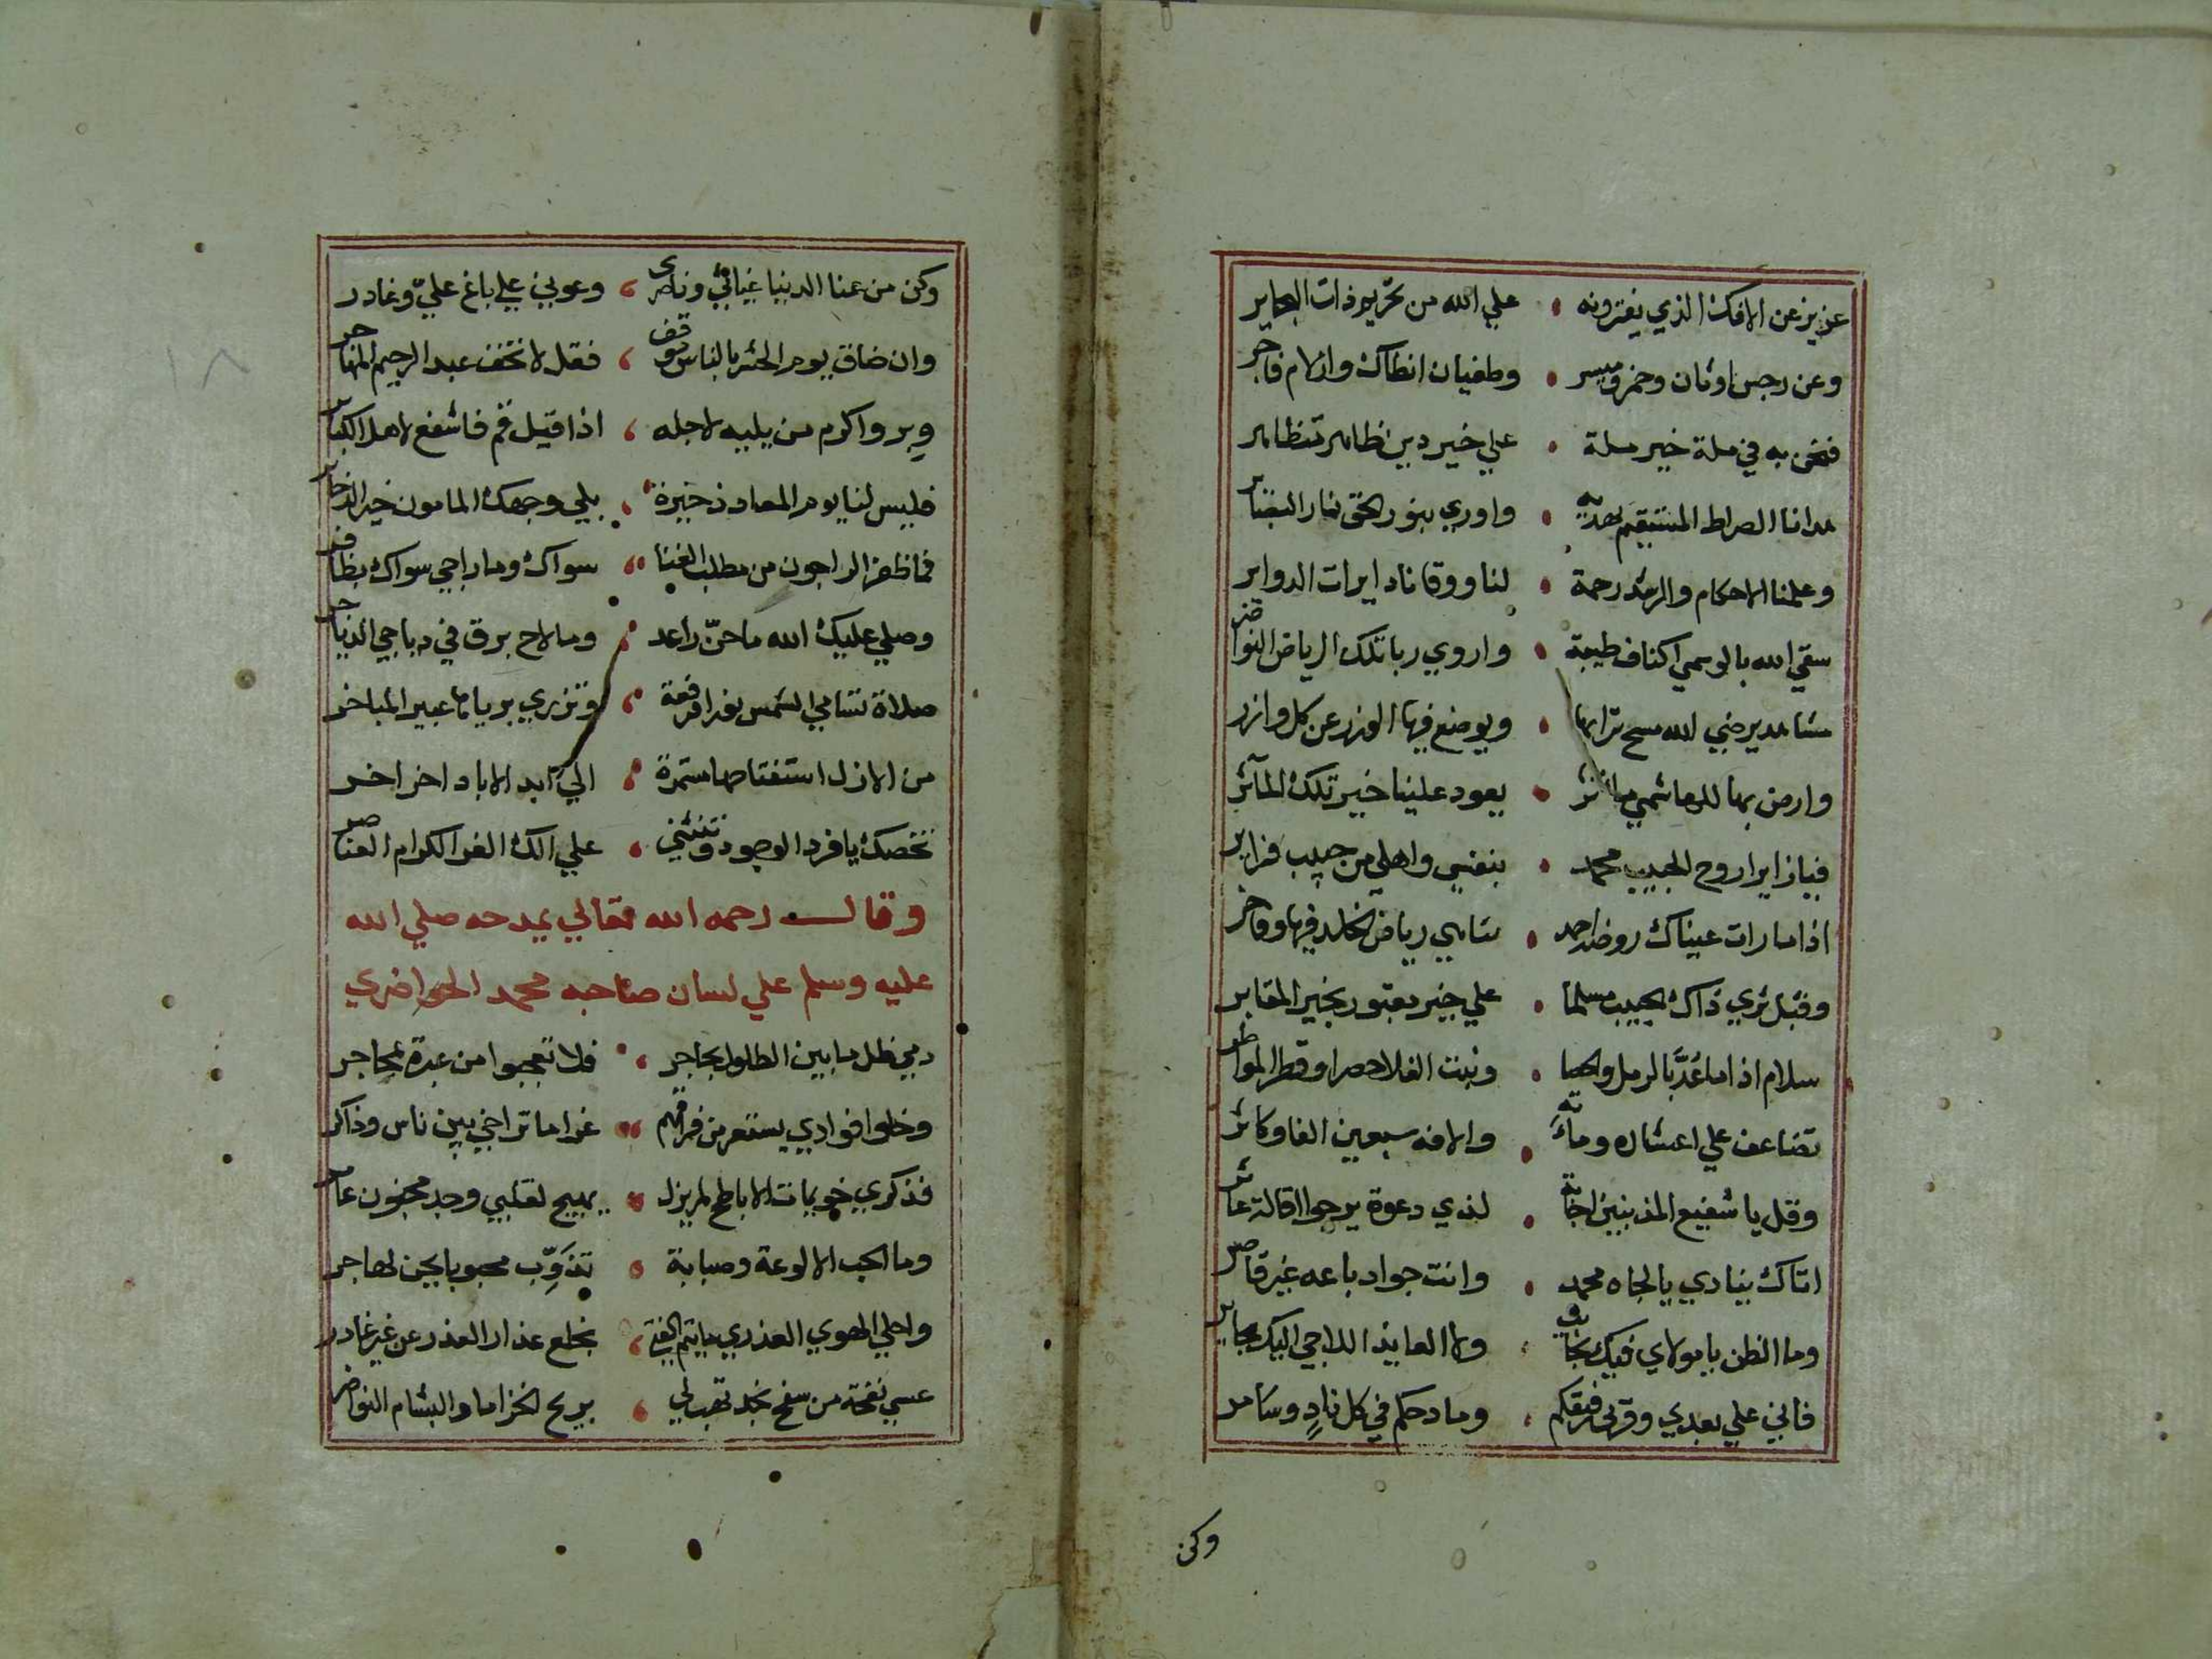 عزيز عن الافك الذي يفترونه علي الله من تحريم ذات البحاير
وعن رجس اوثان وخمر وميسر وطغيان انطاك وازلام فاجر
فنحن به في ملة خير ملة علي خير دين ظاهر متظاهر
هدانا الصراط المستقيم بهديه واوري بنور الحق نار البصاير
وعلمنا الاحكام والرشد رحمة لنا ووقانا دايرات الدواير
سقي الله بالوسمي اكناف طيبة واروي ربا تلك الرياض النواضر
مشاهد يرضي الله مسح ترابها ويوضع فيها الوزر عن كل وازر
وارض بها للهاشمي مآثر يعود علينا خير تلك المآثر
فيا زايرا روح الحبيب محمد بنفسي واهلي من حبيب وزاير
اذا ما رات عيناك روضة احمد تباهي رياض الخلد فيها وفاخر
وقبل ثري ذاك الحبيب مسلما علي خير مقبور بخير المقابر
سلام اذا ما عد بالرمل والحصا ونبت الفلا حصرا وقطر المواطر
تضاعف علي اعشاره ومآته والافه سبعين الفا وكاثر
وقل يا شفيع المذنبين اجابة لذي دعوة يرجوا اقالة عاثر
اتاك ينادي يا لجاه محمد وانت جواد باعه غير قاصر
وما الظن يا مولاي فيك بخايب ولا العايذ اللاجي اليك بجاير
فاني علي بعدي وقربي رقيقكم ومادحكم في كل ناد وسامر
وكن
وكن من عنا الدنيا غياثي وناصري وعوني علي باغ علي وغادر
وان ضاق يوم الحشر بالناس موقف فقل لا تخف عبد الرحيم المهاجر
وبر واكرم من يليه لاجله اذا قيل قم فاشفع لاهل الكباير
فليس لنا يوم المعاد ذخيرة بلي وجهك المامون خير الذخاير
فما ظفر الراجون من مطلب الغنا سواك وما راجي سواك بظافر
وصلي عليك الله ما حن راعد وما لاح برق في دياجي الدياجر
صلاة تسامي الشمس نورا ورفعة وتزري برياها عبير المباخر
من الازل استفتاحها مستمرة الي ابد الاباد اخر اخر
تخصك يا فرد الوجود وتنثني علي الك الغر الكرام العناصر
وقال رحمه الله تعالي يمدحه صلي الله
عليه وسلم علي لسان صاحبه محمد الحواضري
دمي ظل ما بين الطلول بحاجر فلا تعجبوا من عبرة بمحاجر
وخلوا فوادي يستعر من فراقهم غراما تراخي بين ناس وذاكر
فذكري خويمات الاباطح لم يزل يهيج لقلبي وجد مجنون عامر
وما الحب الا لوعة وصبابة تذوب محبوبا يحن لهاجر
واحلي الهوي العذري ما يتم الفتي بخلع عذار العذر عن غير غادر
عسي نفحة من سفح نجد تهب لي بريح الخزاما والبشام النواضر
١٨